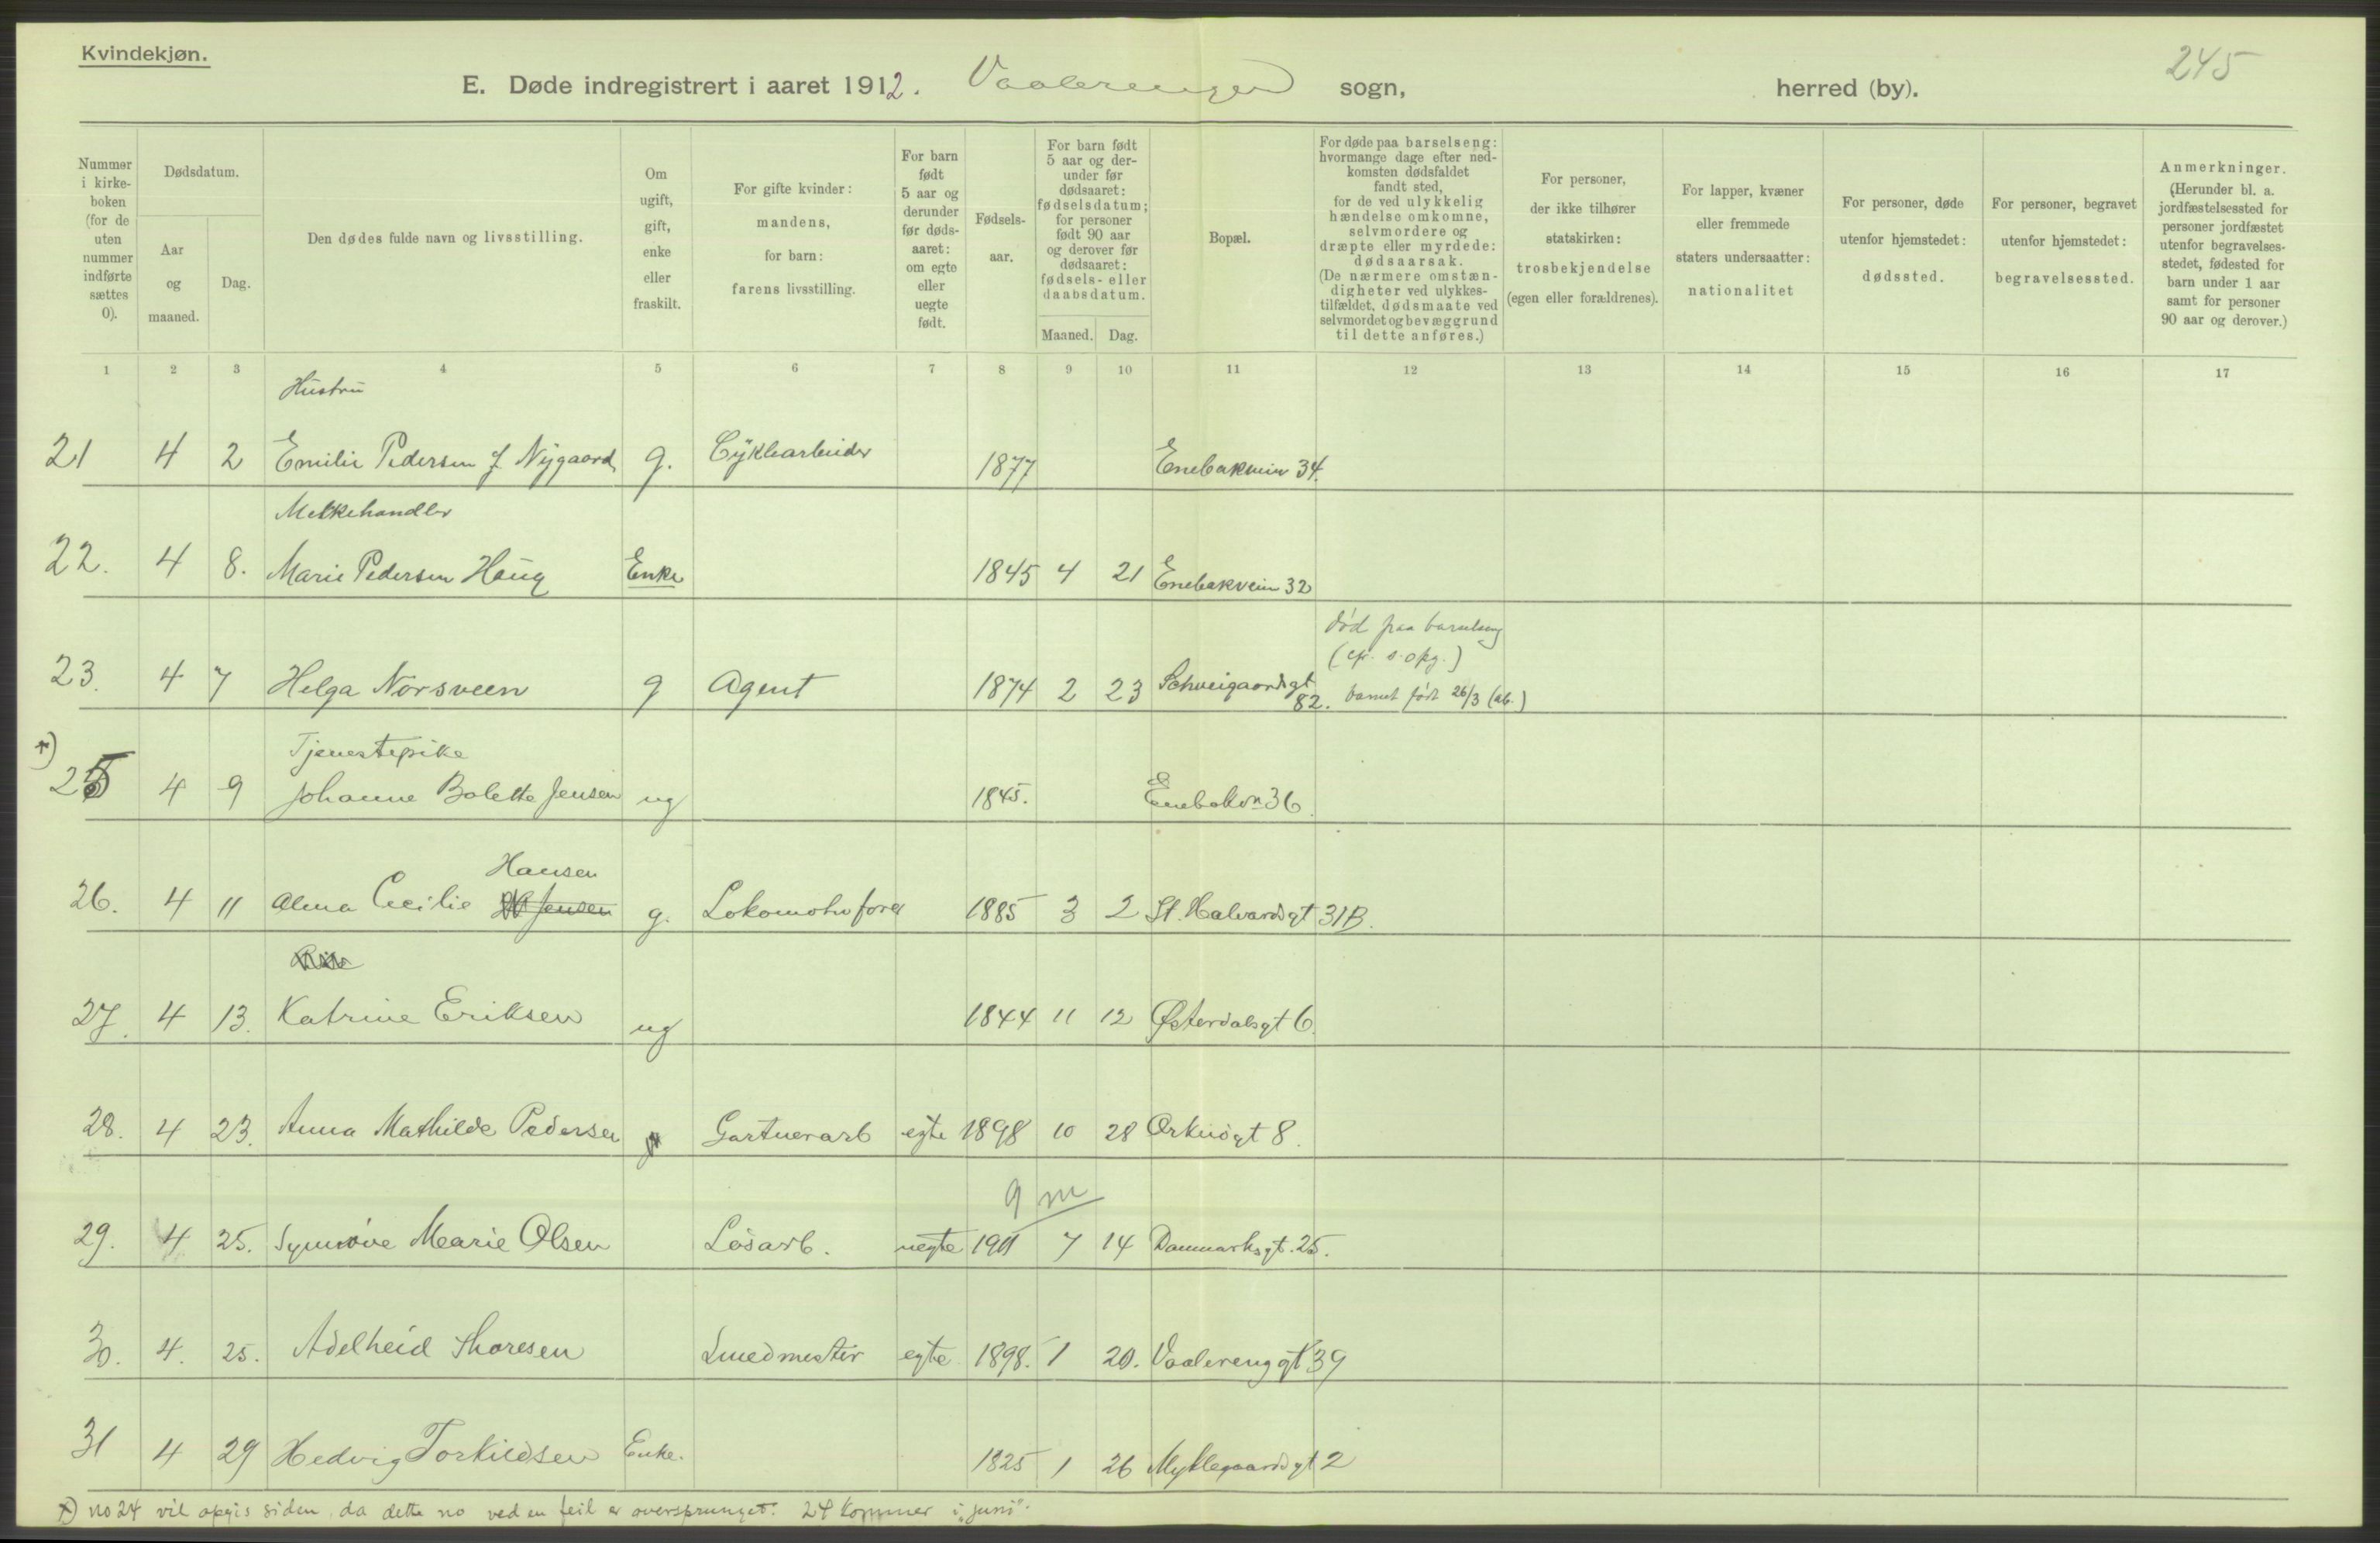 Kvindekjøn.
245
E. Døde indregistrert i aaret 1912. Vaalerengen sogn, herred (by).
Nummer i kirkeboken (for de uten nummer indførte sættes 0).
Dødsdatum.
Aar og maaned.
Dag.
Den dødes fulde navn og livsstilling.
Om ugift, gift, enke eller fraskilt.
For gifte kvinder: mandens, for barn: farens livsstilling.
For barn født 5 aar og derunder før dødsaaret: om egte eller uegte født.
Fødselsaar.
For barn født 5 aar og derunder før dødsaaret: fødselsdatum; for personer født 90 aar og derover før dødsaaret: fødsels- eller daabsdatum.
Maaned. Dag.
Bopæl.
For døde paa barselseng: hvormange dage efter nedkomsten dødsfaldet fandt sted, for de ved ulykkelig hændelse omkomne, selvmordere og dræpte eller myrdede: dødsaarsak. (De nærmere omstændigheter ved ulykkestilfældet, dødsmaate ved selvmordet og bevæggrund til dette anføres.)
For personer, der ikke tilhører statskirken: trosbekjendelse (egen eller forældrenes).
For lapper, kvæner eller fremmede staters undersaatter: nationalitet
For personer, døde utenfor hjemstedet: dødssted.
For personer, begravet utenfor hjemstedet: begravelsessted.
Anmerkninger. (Herunder bl. a. jordfæstelsessted for personer jordfæstet utenfor begravelsesstedet, fødested for barn under 1 aar samt for personer 90 aar og derover.)
1 2 3 4 5 6 7 8 9 10 11 12 13 14 15 16 17
Hustru
21 4 2 Emilie Pedersen f. Nygaard g. Cyklearbeider 1877 Enebakvein 34.
Melkehandler
22. 4 8. Marie Pedersen Haug Enke 1845 4 21 Enebakvein 32
død paa barselseng
23. 4 7 Helga Norsveen g Agent 1874 2 23 Schweigaardsgt 82. barnet født 26/3 (ab.)
Tjenestepike
x) 25 4 9 Johanne Bolette Jensen ug 1845. Enebakvn 36.
Hansen
26. 4 11 Alma Cecilie Jensen g. Lokomotivfører 1885 3 2 St. Halvardsgt 31B.
27. 4 13. Katrine Eriksen ug 1844 11 12 Østerdalsgt 6.
28. 4 23. Anna Mathilde Pedersen Gartnerarb egte 1898 10 28 Orknøgt 8.
9 m
29. 4 25. Synnøve Marie Olsen Løsarb. uegte 1911 7 14 Danmarksgt. 25.
30. 4. 25. Adelheid Thoresen Smedmester egte 1898. 1 20. Vaalerenggt 39
31 4 29 Hedvig Torkildsen Enke. 1825 1 26 Myklegaardsgt 2
x) no 24 vil opgis siden, da dette no ved en feil er oversprunget. 24 kommer i "juni".